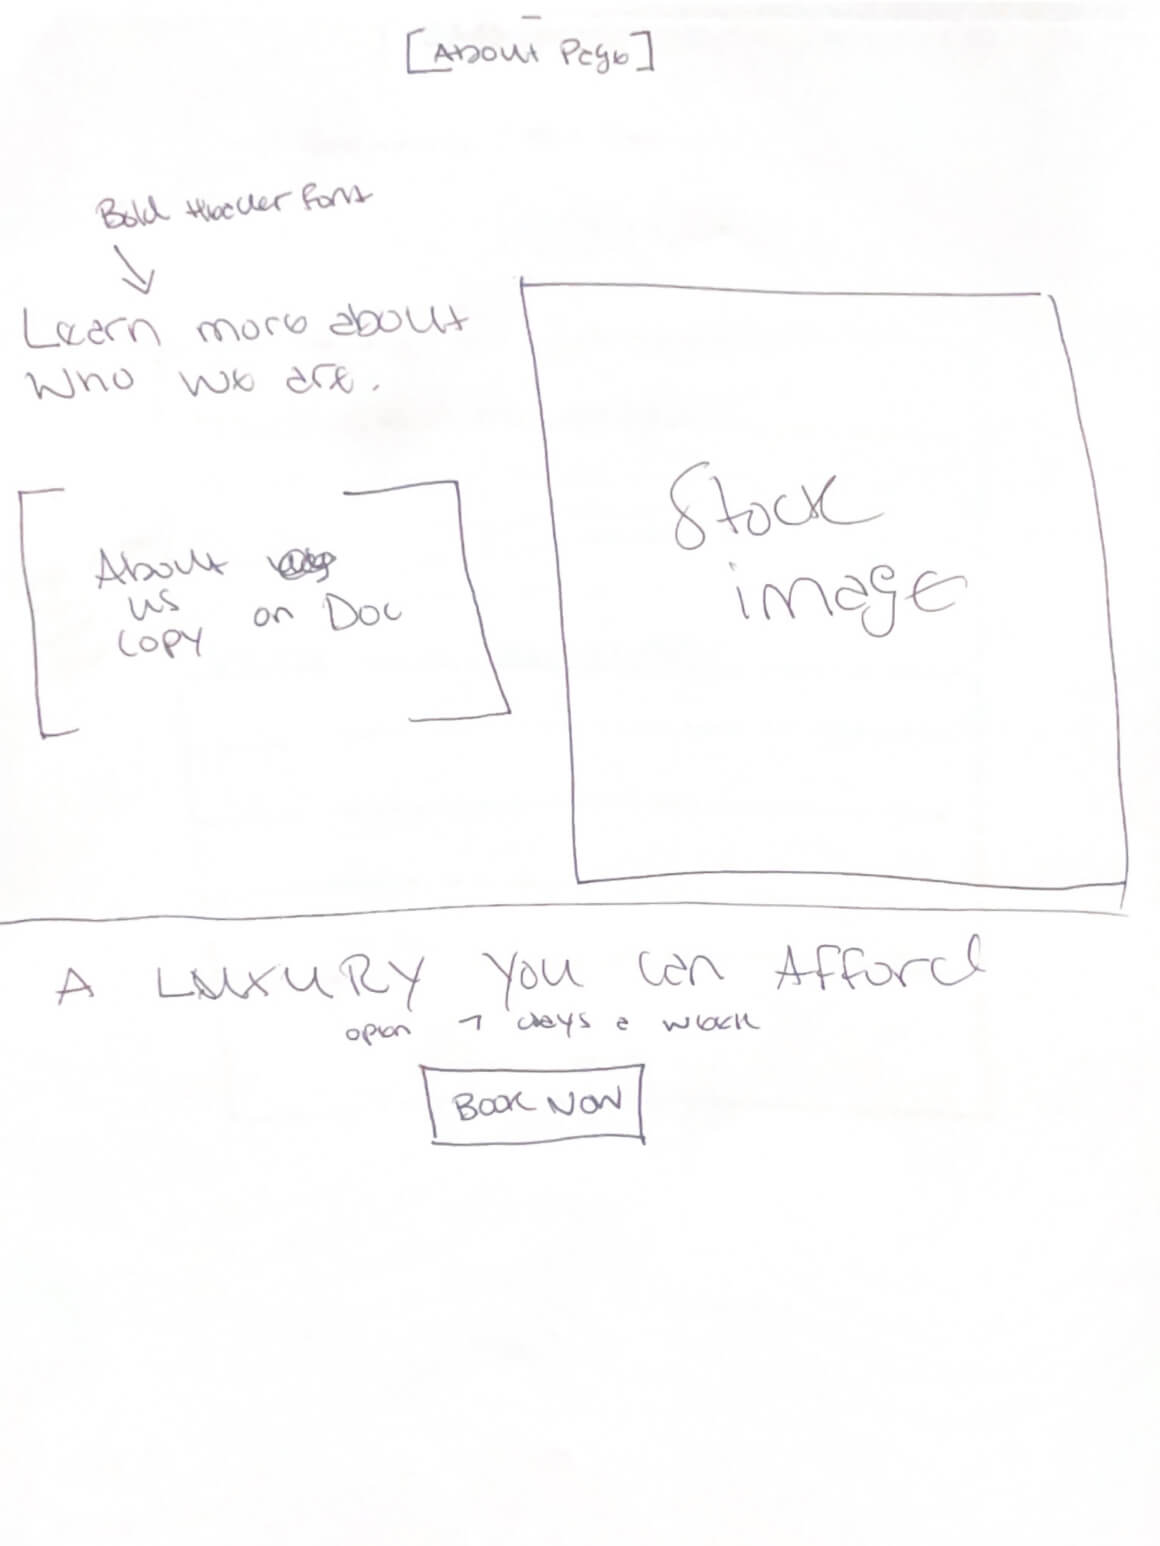 [About Page]
Bold Header Font
Learn more about
Who we are.
About
us on Doc
copy
Stock
image
A LUXURY You Can Afford
open 7 days a week
BOOK NOW